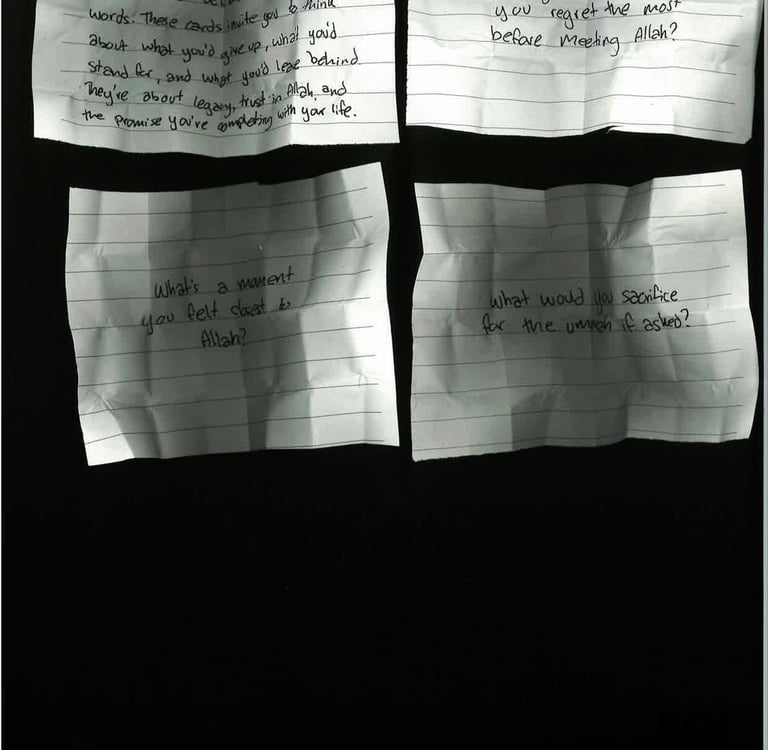 words. These cards invite you to think
about what you'd give up, what you'd
stand for, and what you'd leave behind
They're about legacy, trust in Allah, and
the promise you're completing with your life.
you regret the most
before meeting Allah?
What's a moment
you felt closest to
Allah?
What would you sacrifice
for the ummah if asked?